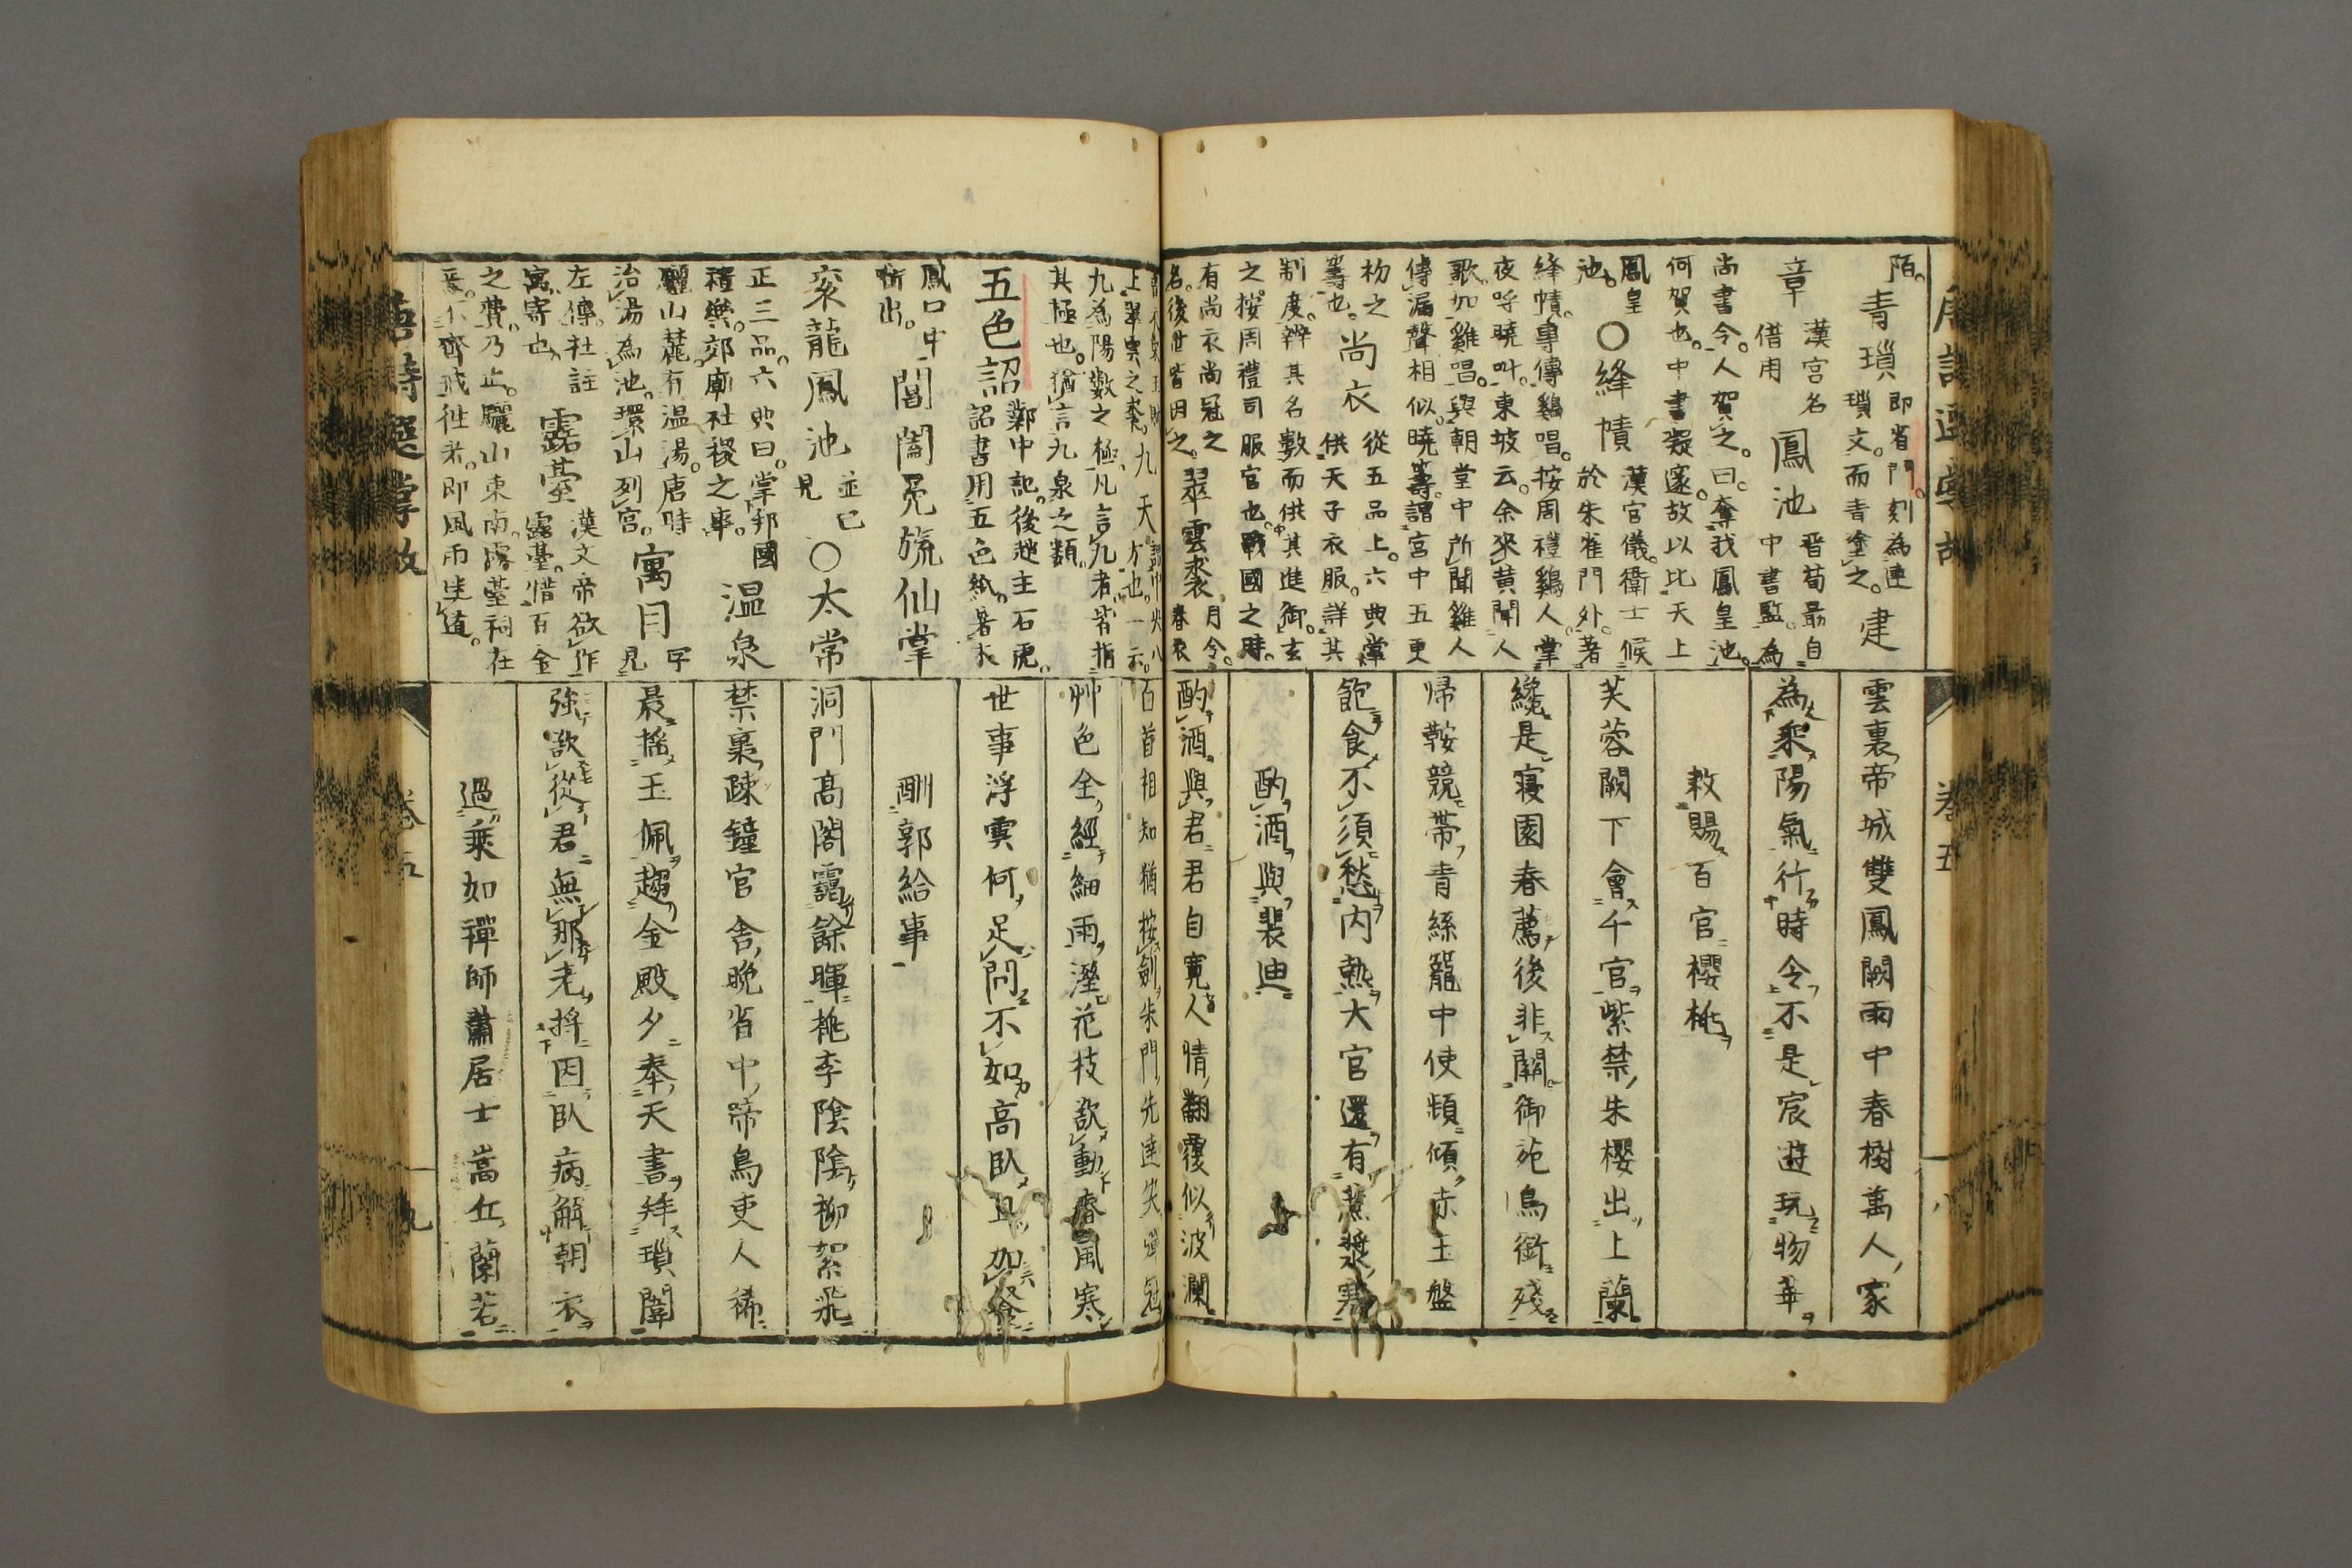 陌。青瑣即省門。刻為連瑣文。而青塗之。建
章漢宮名借用鳳池晉荀最自中書監。為
尚書令。人賀之。曰。奪我鳳皇池。
何賀也。中書凝邃。故以比天上
鳳皇池。〇絳幘漢官儀。衛士候於朱雀門外。著
絳幘。專傳鷄唱。按周禮鷄人。掌
夜呼曉叫。東坡云。余來黄聞人
歌。如雞唱。與朝堂中所聞雞人
傳漏聲相似。曉籌。謂宮中五更
籌也。尚衣從五品上。六典掌供天子衣服。詳其
制度。辨其名數而供其進御。玄
之。按。周禮司服官也。戰國之時。
有尚衣尚冠之名。後世皆因之。翠雲裘
九天謂中央八方也。一云。
九為陽數之極。凡言九者。皆指
其極也。猶言九泉之類。
五色詔鄴中記。後趙主石虎。詔書用五色紙。著木
鳳口中銜出。閶闔冕旒仙掌
衮龍鳳池並已見〇太常
正三品。六典曰。掌邦國禮樂。郊廟社稷之事。温泉
驪山麓。有温湯。唐時治湯為池。環山列宮。寓目
左傳。杜註寓。寄也。露臺漢文帝欲作露臺。惜百金
之費。乃止。驪山東南。露臺祠在
唐詩選掌故
雲裏帝城雙鳳闕雨中春樹萬人家
為乘陽氣行時令不是宸遊玩物華
敕賜百官櫻桃
芙蓉闕下會千官紫禁朱櫻出上蘭
纔是寢園春薦後非關御苑鳥銜殘
歸鞍競帶青絲籠中使頻傾赤玉盤
飽食不須愁内熱大官還有蔗漿寒
酌酒與裴迪
酌酒與君君自寬人情翻覆似波瀾
白首相知猶按劍朱門先達笑彈冠
艸色全經細雨溼花枝欲動春風寒
世事浮雲何足問不如高臥且加餐
酬郭給事
洞門高閣靄餘暉桃李陰陰柳絮飛
禁裏疎鐘官舍晩省中啼鳥吏人稀
晨搖玉佩趨金殿夕奉天書拜瑣闈
強欲從君無那老將因臥病解朝衣
過乘如禪師蕭居士嵩丘蘭若
卷五